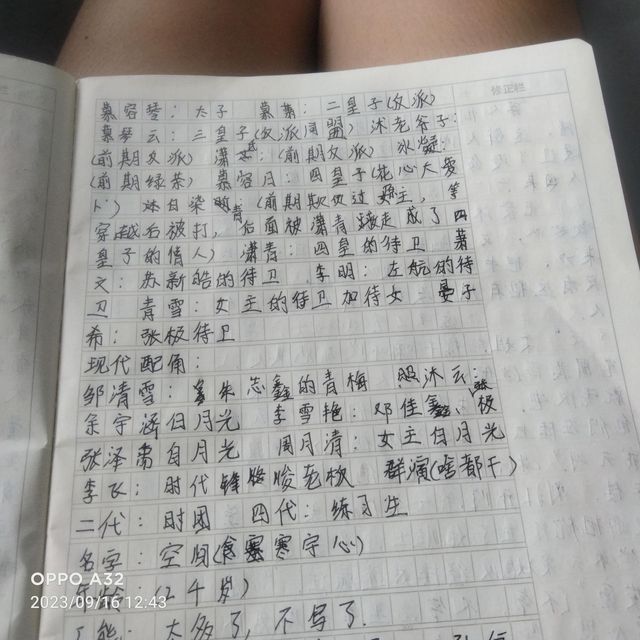 修正栏
慕容琴：太子 慕萧：二皇子(反派)
慕琴云：三皇子(反派同盟) 沐老爷子：
(前期反派) 潇：(前期反派) 狄凝：
(前期绿茶) 慕容月：四皇子(花心大萝
卜) 沐白染 (前期欺负过女主，等
穿越后被打，后面被潇青踹走成了四
皇子的情人) 潇青：四皇的待卫 萧
文：苏新皓的待卫 李明：左航的待
卫 青雪：女主的待卫加待女 晏子
希：张极待卫
现代配角：
邹清雪：朱志鑫的青梅 沐云：
余宇涵白月光 李雪艳：邓佳鑫、张极
张泽禹白月光 周月清：女主白月光
李飞：时代峰峻老板 群演(啥都干)
二代：时团 四代：练习生
名字：空间(寒宇心)
(2千岁)
太多了，不写了.
OPPO A32
2023/09/16 12:43